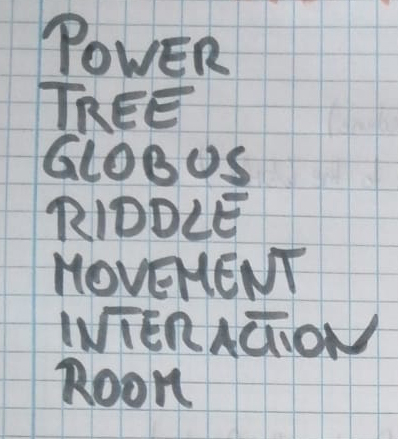 POWER
TREE
GLOBUS
RIDDLE
MOVEMENT
INTERACTION
ROOM